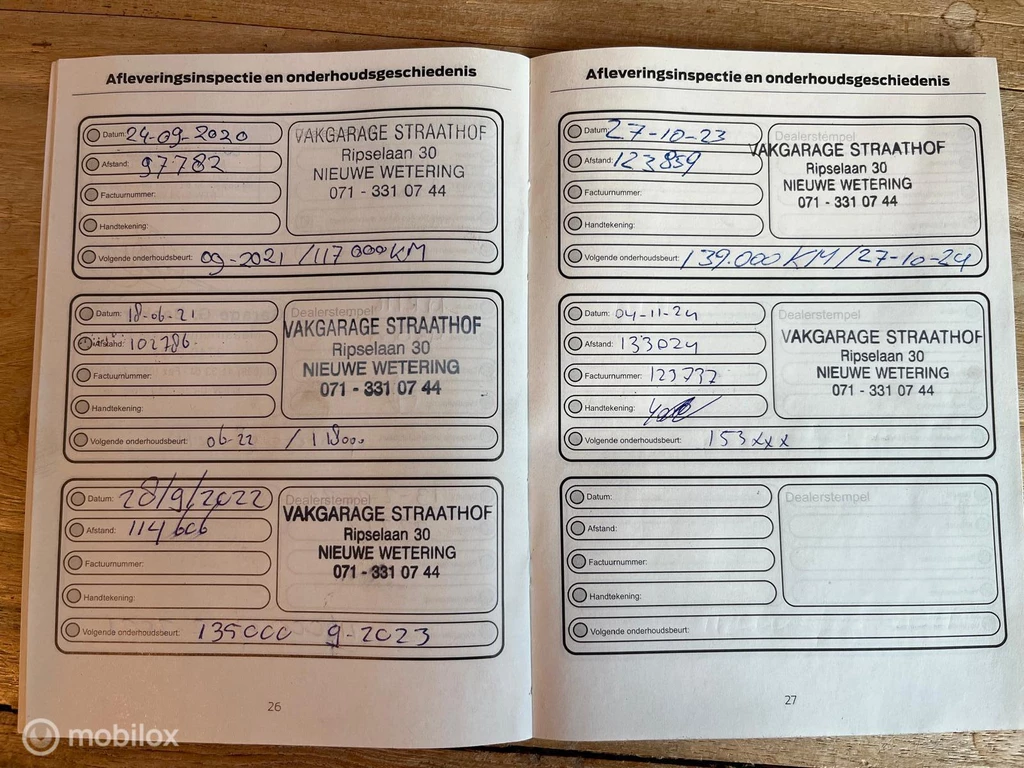 Afleveringsinspectie en onderhoudsgeschiedenis
Datum: 24-09-2020
Afstand: 97782
Factuurnummer:
Handtekening:
Volgende onderhoudsbeurt: 09-2021 / 117000KM
VAKGARAGE STRAATHOF
Ripselaan 30
NIEUWE WETERING
071 - 331 07 44
Datum: 18-06-21
Afstand: 102786.
Factuurnummer:
Handtekening:
Volgende onderhoudsbeurt: 06-22 / 118000
Dealerstempel
VAKGARAGE STRAATHOF
Ripselaan 30
NIEUWE WETERING
071 - 331 07 44
Datum: 28/9/2022
Afstand: 114606
Factuurnummer:
Handtekening:
Volgende onderhoudsbeurt: 135000 9-2023
Dealerstempel
VAKGARAGE STRAATHOF
Ripselaan 30
NIEUWE WETERING
071 - 331 07 44
26
Afleveringsinspectie en onderhoudsgeschiedenis
Datum: 27-10-23
Afstand: 123859
Factuurnummer:
Handtekening:
Volgende onderhoudsbeurt: 139.000 KM/27-10-24
Dealerstempel
VAKGARAGE STRAATHOF
Ripselaan 30
NIEUWE WETERING
071 - 331 07 44
Datum: 04-11-24
Afstand: 133024
Factuurnummer: 123737
Handtekening:
Volgende onderhoudsbeurt: 153xxx
Dealerstempel
VAKGARAGE STRAATHOF
Ripselaan 30
NIEUWE WETERING
071 - 331 07 44
Datum:
Afstand:
Factuurnummer:
Handtekening:
Volgende onderhoudsbeurt:
Dealerstempel
27
mobilox